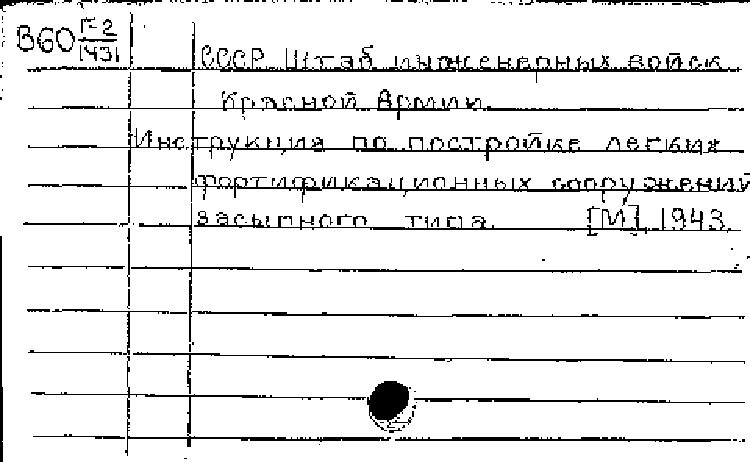 В60 Г-2
1431
СССР. Штаб инженерных войск
Красной Армии.
Инструкция по постройке легких
фортификационных сооружений
засыпного типа. [М], 1943.